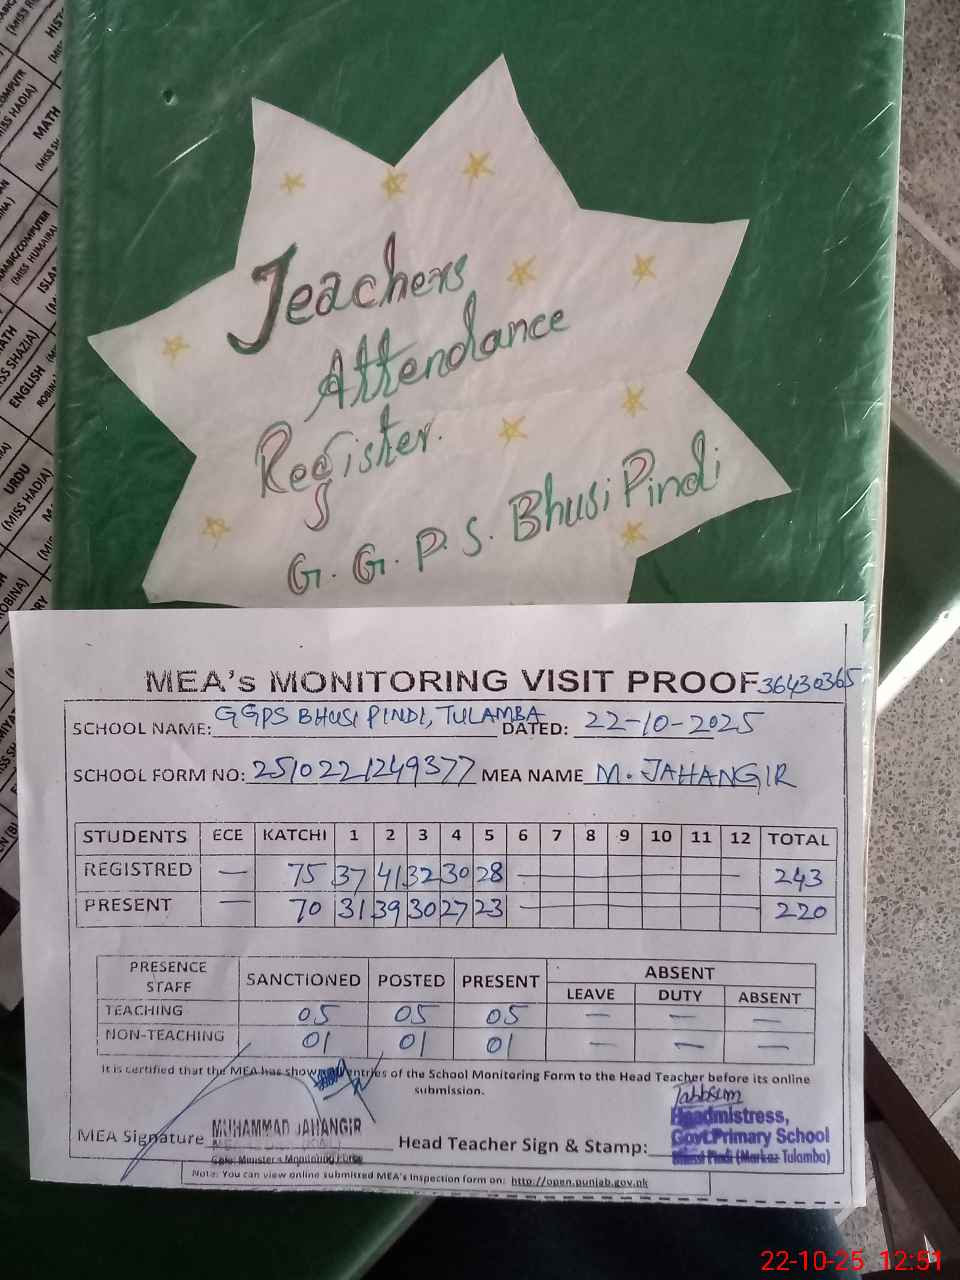 Teachers
Attendance
Register.
G. G. P. S. Bhusi Pindi
MEA's MONITORING VISIT PROOF 36430365
SCHOOL NAME: GGPS BHUSI PINDI, TULAMBA DATED: 22-10-2025
SCHOOL FORM NO: 2510221249377 MEA NAME M. JAHANGIR
STUDENTS ECE KATCHI 1 2 3 4 5 6 7 8 9 10 11 12 TOTAL
REGISTRED — 75 37 41 32 30 28 — 243
PRESENT — 70 31 39 30 27 23 — 220
PRESENCE STAFF SANCTIONED POSTED PRESENT ABSENT
LEAVE DUTY ABSENT
TEACHING 05 05 05 — — —
NON-TEACHING 01 01 01 — — —
It is certified that the MEA has shown entries of the School Monitoring Form to the Head Teacher before its online
submission.
Tabbsum
MEA Signature MUHAMMAD JAHANGIR Head Teacher Sign & Stamp: Headmistress,
Govt.Primary School
Pindi (Markaz Tulamba)
Chief Minister's Monitoring Force
Note: You can view online submitted MEA's inspection form on: http://open.punjab.gov.pk
MATH
(MISS HADIA)
(MISS HUMAIRA)
(MISS SHAZIA)
ENGLISH
URDU
(MISS HADIA)
22-10-25 12:51